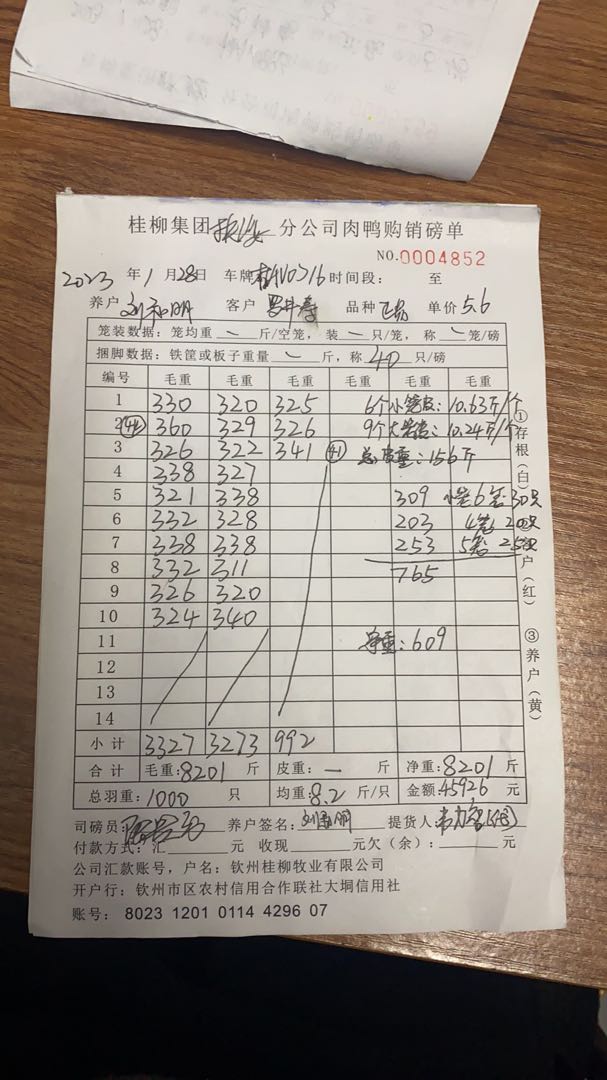 桂柳集团 分公司肉鸭购销磅单
NO.0004852
2023年1月28日 车牌 时间段: 至
养户 客户 品种 单价5.6
笼装数据：笼均重 一 斤/空笼，装 一 只/笼，称 一 笼/磅
捆脚数据：铁筐或板子重量 一 斤，称 40 只/磅
编号 毛重 毛重 毛重 毛重 毛重 毛重
1 330 320 325 6个小笼皮：10.63斤/个
2 (42) 360 329 326 9个大笼皮：10.24斤/个
3 326 322 341 (41) 总皮重：156斤
4 338 327
5 321 338 309 小笼6笼 30只
6 332 328 203 4笼 20只
7 338 338 253 5笼 25只
8 332 311 765
9 326 320
10 324 340
11 净重：609
12
13
14
小计 3327 3273 992
合计 毛重:8201 斤 皮重: 一 斤 净重:8201 斤
总羽重:1000 只 均重:8.2 斤/只 金额:45926 元
司磅员: 养户签名: 提货人:
付款方式：汇 元 收现 元欠（余）： 元
公司汇款账号，户名：钦州桂柳牧业有限公司
开户行：钦州市区农村信用合作联社大垌信用社
账号： 8023 1201 0114 4296 07
①存根(白) ②客户(红) ③养户(黄)